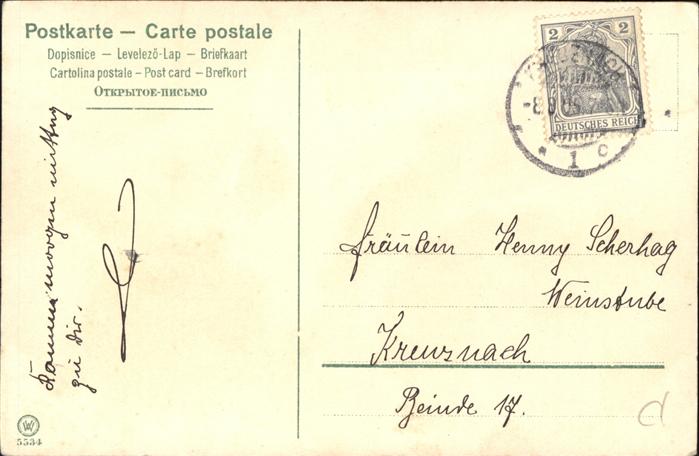 Postkarte — Carte postale
Dopisnice — Levelező-Lap — Briefkaart
Cartolina postale - Post card - Brefkort
Открытое-письмо
Komme morgen mittag
zu dir.
2 2
DEUTSCHES REICH
1 c
Fräulein Henny Scherhag
Weinstube
Kreuznach
Beinde 17.
5534